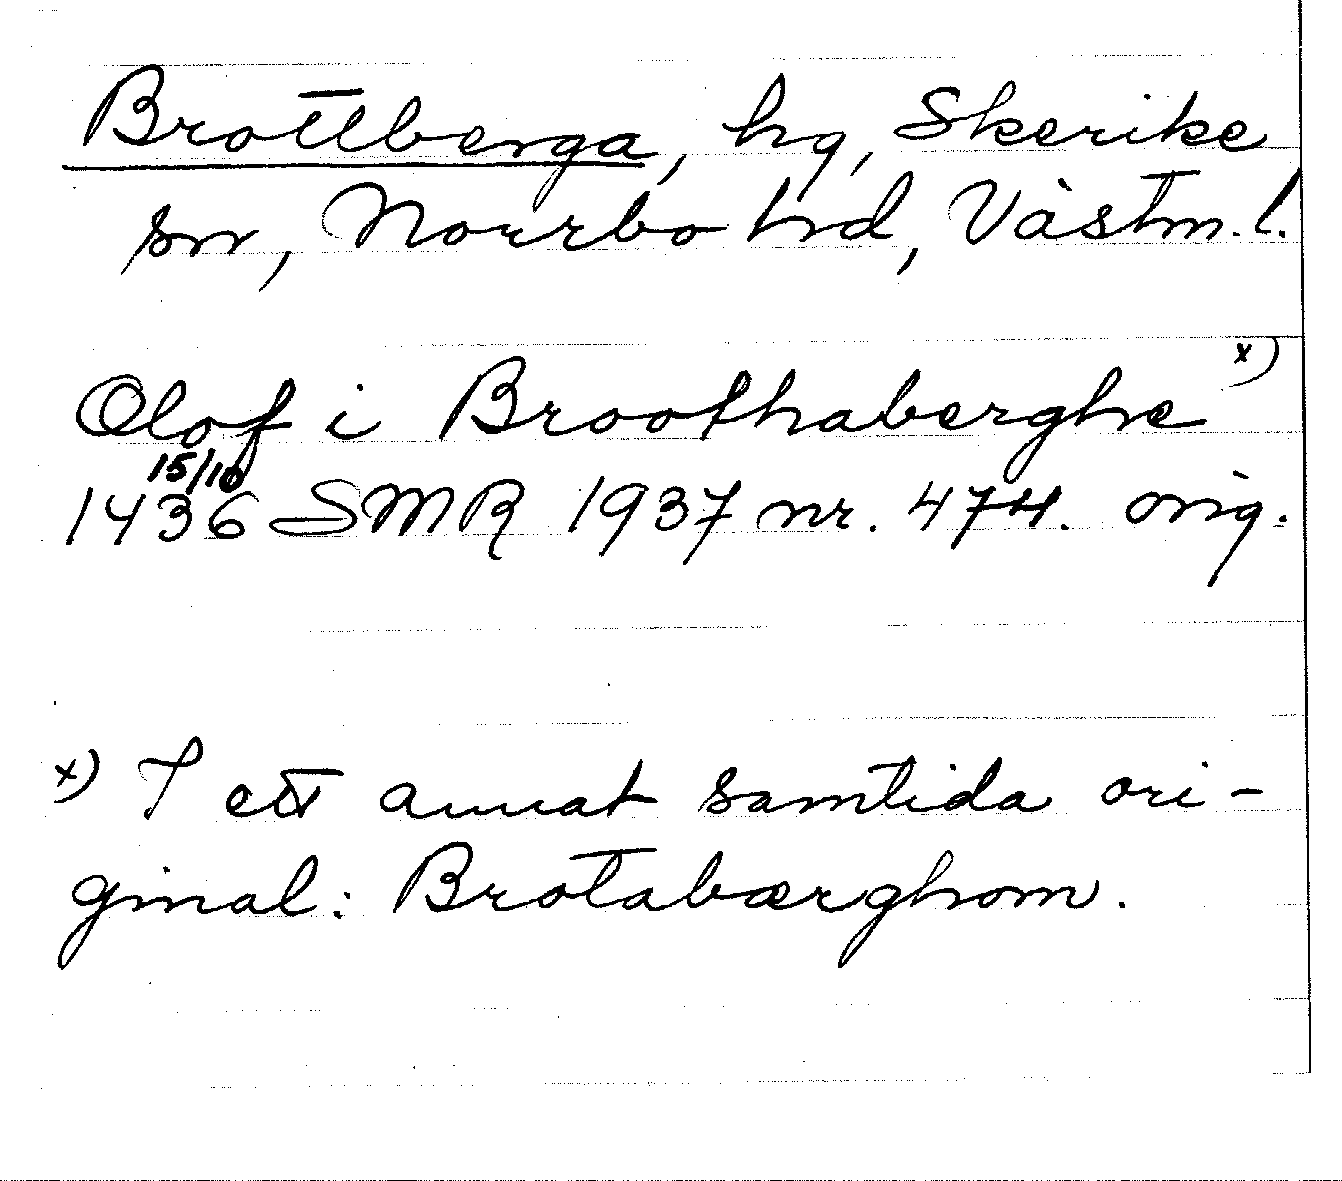 Brottberga, hg, Skerike
sn, Norrbo hrd, Västm. l.
Olof i Broothaberghe x)
15/10
1436 SMR 1937 nr. 474. orig.
x) I ett annat samtida ori-
ginal: Brotabærghom.